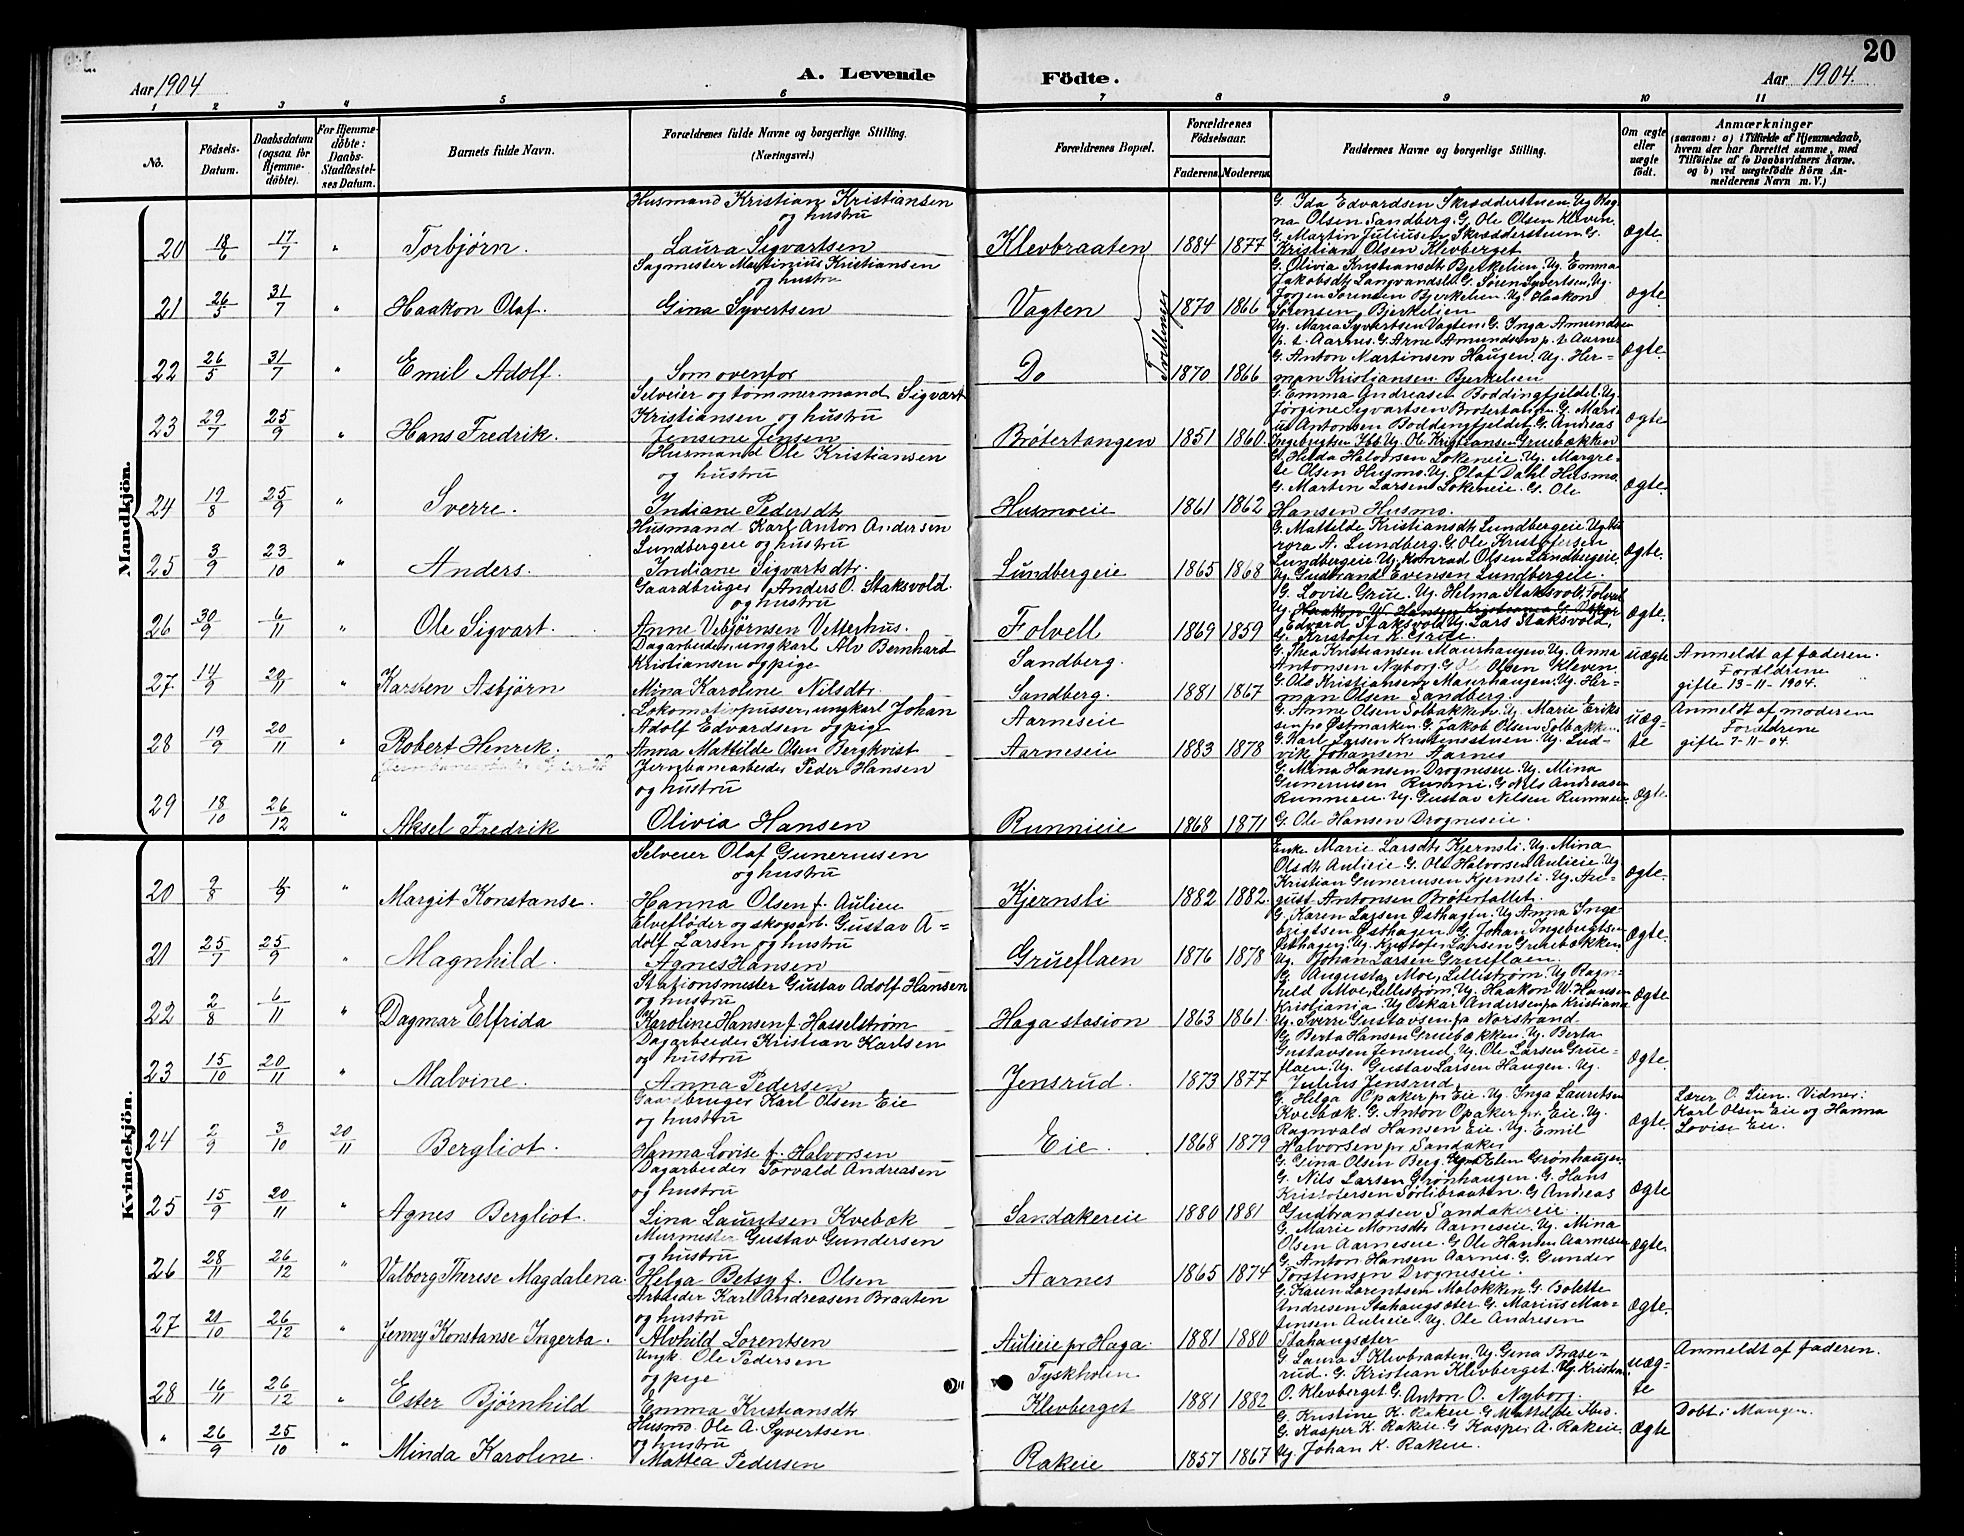 20
Aar 1904
A. Levende
Födte.
Aar 1904.
1 2 3 4 5 6 7 8 9 10 11
No.
Födsels-Datum.
Daabsdatum (ogsaa for Hjemme-döbte).
For Hjemme-döbte: Daabs-Stadfæstel-ses Datum.
Barnets fulde Navn.
Forældrenes fulde Navne og borgerlige Stilling. (Næringsvei.)
Forældrenes Bopæl.
Forældrenes Födselsaar.
Faderens. Moderens.
Faddernes Navne og borgerlige Stilling.
Om ægte eller uægte födt.
Anmærkninger
(saasom: a) i Tilfælde af Hjemmedaab, hvem der har forrettet samme, med Tilföielse af to Daabsvidners Navne, og b) ved uægtefödte Börn Anmelderens Navn m. V.)
Mandkjön.
20 18/6 17/7 " Torbjørn. Husmand Kristian Kristiansen og hustru Laura Sigvartsen Klevbraaten 1884 1877 G. Ida Edvardsen Skrædderstuen. Ug. Magna Olsen Sandberg. G. Ole Olsen Kleven. G. Martin Juliusen Skrædderstuen G. Kristian Olsen Klevberget ægte.
21 26/5 31/7 " Haakon Olaf. Sagmester Martinius Kristiansen og hustru Gina Syvertsen Vagten Tvillinger 1870 1866 G. Olivia Kristiansdtr Bjerkelien. Ug. Emma Jakobsdtr Langvandsld G. Søren Syvertsen, Ug. Jørgen Sørensen Bjerkelien Ug. Haakon Sørensen Bjerkelien ægte.
22 26/5 31/7 " Emil Adolf. Som ovenfor Do 1870 1866 Ug. Maria Syvertsen Vagten G. Inga Amundsen p. t. Aarnes G. Arne Amundsen p. t. Aarnes G. Anton Martinsen Haugen. Ug. Herman Kristiansen Bjerkelien ægte.
23 29/7 25/9 " Hans Fredrik. Selveier og tømmermand Sigvart Kristiansen og hustru Jensine Jensen Brøtertangen 1851 1860 G. Emma Andreasen Boddingfjeldet. Ug. Jørgine Sigvartsen Brøtertangen G. Marius Antonsen Boddingfjeldet G. Andreas Ingebrigtsen Ug. Ole Kristiansen Gruebækken ægte.
24 19/8 25/9 " Sverre. Husmand Ole Kristiansen og hustru Indiane Pedersdtr Husmoeie 1861 1862 G. Hilda Halvorsen Løkeneie. Ug. Margrete Olsen Husmo. Ug. Olaf Dahl Husmo. G. Marten Larsen Løkeneie. G. Ole Hansen Husmo. ægte.
25 3/9 23/10 " Anders. Husmand Karl Anton Andersen Lundbergeie og hustru Indiane Sigvartsdtr. Lundbergeie 1865 1868 G. Mattilde Kristiansdtr Lundbergeie Ug. Aurora A. Lundberg. G. Ole Kristofersen Lundbergeie Ug. Konrad Olsen Lundbergeie, Ug. Gudbrand Evensen Lundbergeie. ægte.
26 30/9 6/11 " Ole Sigvart. Gaardbruger Anders O. Staksvold. og hustru Anne Vebjørnsen Vetterhus. Folvell 1869 1859 G. Lovise Grue. Ug. Helma Staksvold, Folvell Ug. Haakon W. Hansen Kristiania G. Oskar Edvard Staksvold Ug. Lars Staksvold, G. Kristofer K. Grue. ægte.
27. 14/9 20/11 " Karsten Asbjørn Dagarbeider, ungkarl Alv Bernhard Kristiansen og pige Mina Karoline Nilsdtr. Sandberg. Sandberg. 1881 1867 G. Thea Kristiansen Maurhaugen Ug. Anna Antonsen Nyborg. G. Ole Olsen Kleven. G. Ole Kristiansen Maurhaugen. Ug. Herman Olsen Sandberg. uægte Anmeldt af faderen. Forældrene gifte 13-11-1904.
28 19/9 20/11 " Robert Henrik. Lokomotivpusser, ungkarl Johan Adolf Edvardsen og pige Anna Mattilde Olsen Bergkvist Aarneseie Aarneseie 1883 1878 G. Anne Olsen Solbakken. Ug. Marie Eriksen fra Østmarken. G. Jakob Olsen Solbakken. G. Karl Larsen Kristensstuen. Ug. Ludvik Johansen Aarnes uæg-te Anmeldt af moderen Forældrene gifte 7-11-04.
29 18/10 26/12 " Aksel Fredrik Jernbanearbeider Peder Hansen og hustru Olivia Hansen Runnieie 1868 1871 G. Mina Hansen Drogneseie. Ug. Mina Gunerusen Runni. G. Nils Andreasen Runnieie. Ug. Gustav Nilsen Runnieie. G. Ole Hansen Drogneseie. ægte.
Kvindekjön.
20 9/8 4/9 " Margit Konstanse. Selveier Olaf Guneriusen og hustru Hanna Olsen f. Aulien Kjernsli 1882 1882 Enke Marie Larsdtr Kjernsli. Ug. Mina Olsdtr Aulieie G. Ole Halvorsen Aulieie. Ug. Kristian Guneriusen Kjernsli. Ug. August Antonsen Brøterfallet. ægte.
21 25/7 25/9 " Magnhild. Elvefløder og skogsarb. Gustav Adolf Larsen og hustru Agnes Hansen Grueflaen 1876 1878 G. Karen Larsen Østhagen. Ug. Anna Ingebrigtsen Østhagen. G. Johan Ingebrigtsen Østhagen. Ug. Kristofer Larsen Gruebækken Ug. Johan Larsen Grueflaen. ægte.
22 2/8 6/11 " Dagmar Elfrida Stationsmester Gustav Adolf Hansen og hustru Karoline Hansen f. Hasselstrøm Haga stasion 1863 1861 G. Augusta Moe, Lillestrøm. Ug Ragnhild Moe, Lillestrøm. Ug. Haakon W. Hansen Kristiania. Ug Oskar Andersen fra Kristiania Ug. Sverre Gustavsen fra Norstrand. ægte
23 15/10 20/11 " Malvine. Dagarbeider Kristian Karlsen og hustru Anna Pedersen Jensrud. 1873 1877 G. Berta Hansen Gruebækken. Ug. Berta Gustavsen Jensrud. Ug. Ole Larsen Grueflaen Ug. Gustav Larsen Haugen. Ug. Julius Jensrud. ægte.
24 2/9 3/10 20/11 Bergliot. Gaardbruger Karl Olsen Eie og hustru Hanna Lovise f. Halvorsen Eie. 1868 1879 G. Helga Opaker pr Eie. Ug. Inga Lauritsen Kvebæk. G. Anton Opaker pr. Eie. Ug. Ragnvald Hansen Eie. Ug. Emil Halvorsen pr Sandaker ægte. Lærer O. Lien. Vidner: Karl Olsen Eie og Hanna Lovise Eie.
25 15/9 20/11 " Agnes Bergliot. Dagarbeider Torvald Andreasen og hustru Lina Lauritsen Kvebæk Sandakereie 1880 1881 G. Gina Olsen Berg. Ug. Elen Grønhaugen, G. Nils Larsen Grønhaugen. G. Hans Kristofersen Sørlibraaten. G Andreas Gudbrandsen Sandakereie. ægte
26 28/11 26/12 " Valborg Therese Magdalena. Murmester Gustav Gundersen og hustru Helga Betsy f. Olsen Aarnes 1865 1874 G. Marie Monsdtr Aarneseie. Ug. Mina Olsen Aarneseie G. Ole Hansen Aarneseie G. Anton Hansen Aarnes. G. Gunder Torstensen Drogneseie. ægte.
27 21/10 26/12 " Jenny Konstanse Ingerta. Arbeider Karl Andreasen Braaten og hustru Alvhild Lorentsen Aulieie pr Haga. 1881 1880 G. Karen Lorentsen Moløkken. G. Bolette Andresen Stahaugsæter G. Marius Martinsen Aulieie. Ug. Ole Andresen Stahaugsæter ægte.
28 16/11 26/12 " Ester Bjørnhild Ungk. Ole Pedersen og pige Emma Kristiansdtr Tyskholen Klevberget 1881 1882 G. Laura S. Klevbraaten. Ug. Gina Braserud. G. Kristian Klevberget. Ug. Kristian O. Klevberget G. Anton O. Nyborg. uæg-te Anmeldt af faderen.
" 26/9 25/10 " Minda Karoline. Husmd. Ole A. Syvertsen og hustru Mattea Pedersen Rakeie 1857 1867 G. Kristine K. Rakeie. G. Mattilde Ibid. G. Kasper K. Rakeie. G Kasper A. Rakeie, Ug. Johan K. Rakeie. ægte Døbt i Mangen.